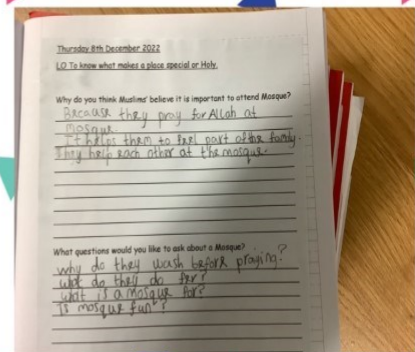 Thursday 8th December 2022
LO To know what makes a place special or Holy.
Why do you think Muslims' believe it is important to attend Mosque?
Because they pray for Allah at
mosque.
It helps them to feel part of the family.
They help each other at the mosque.
What questions would you like to ask about a Mosque?
why do they wash before praying?
what do they do for?
what is a mosque for?
Is mosque fun?